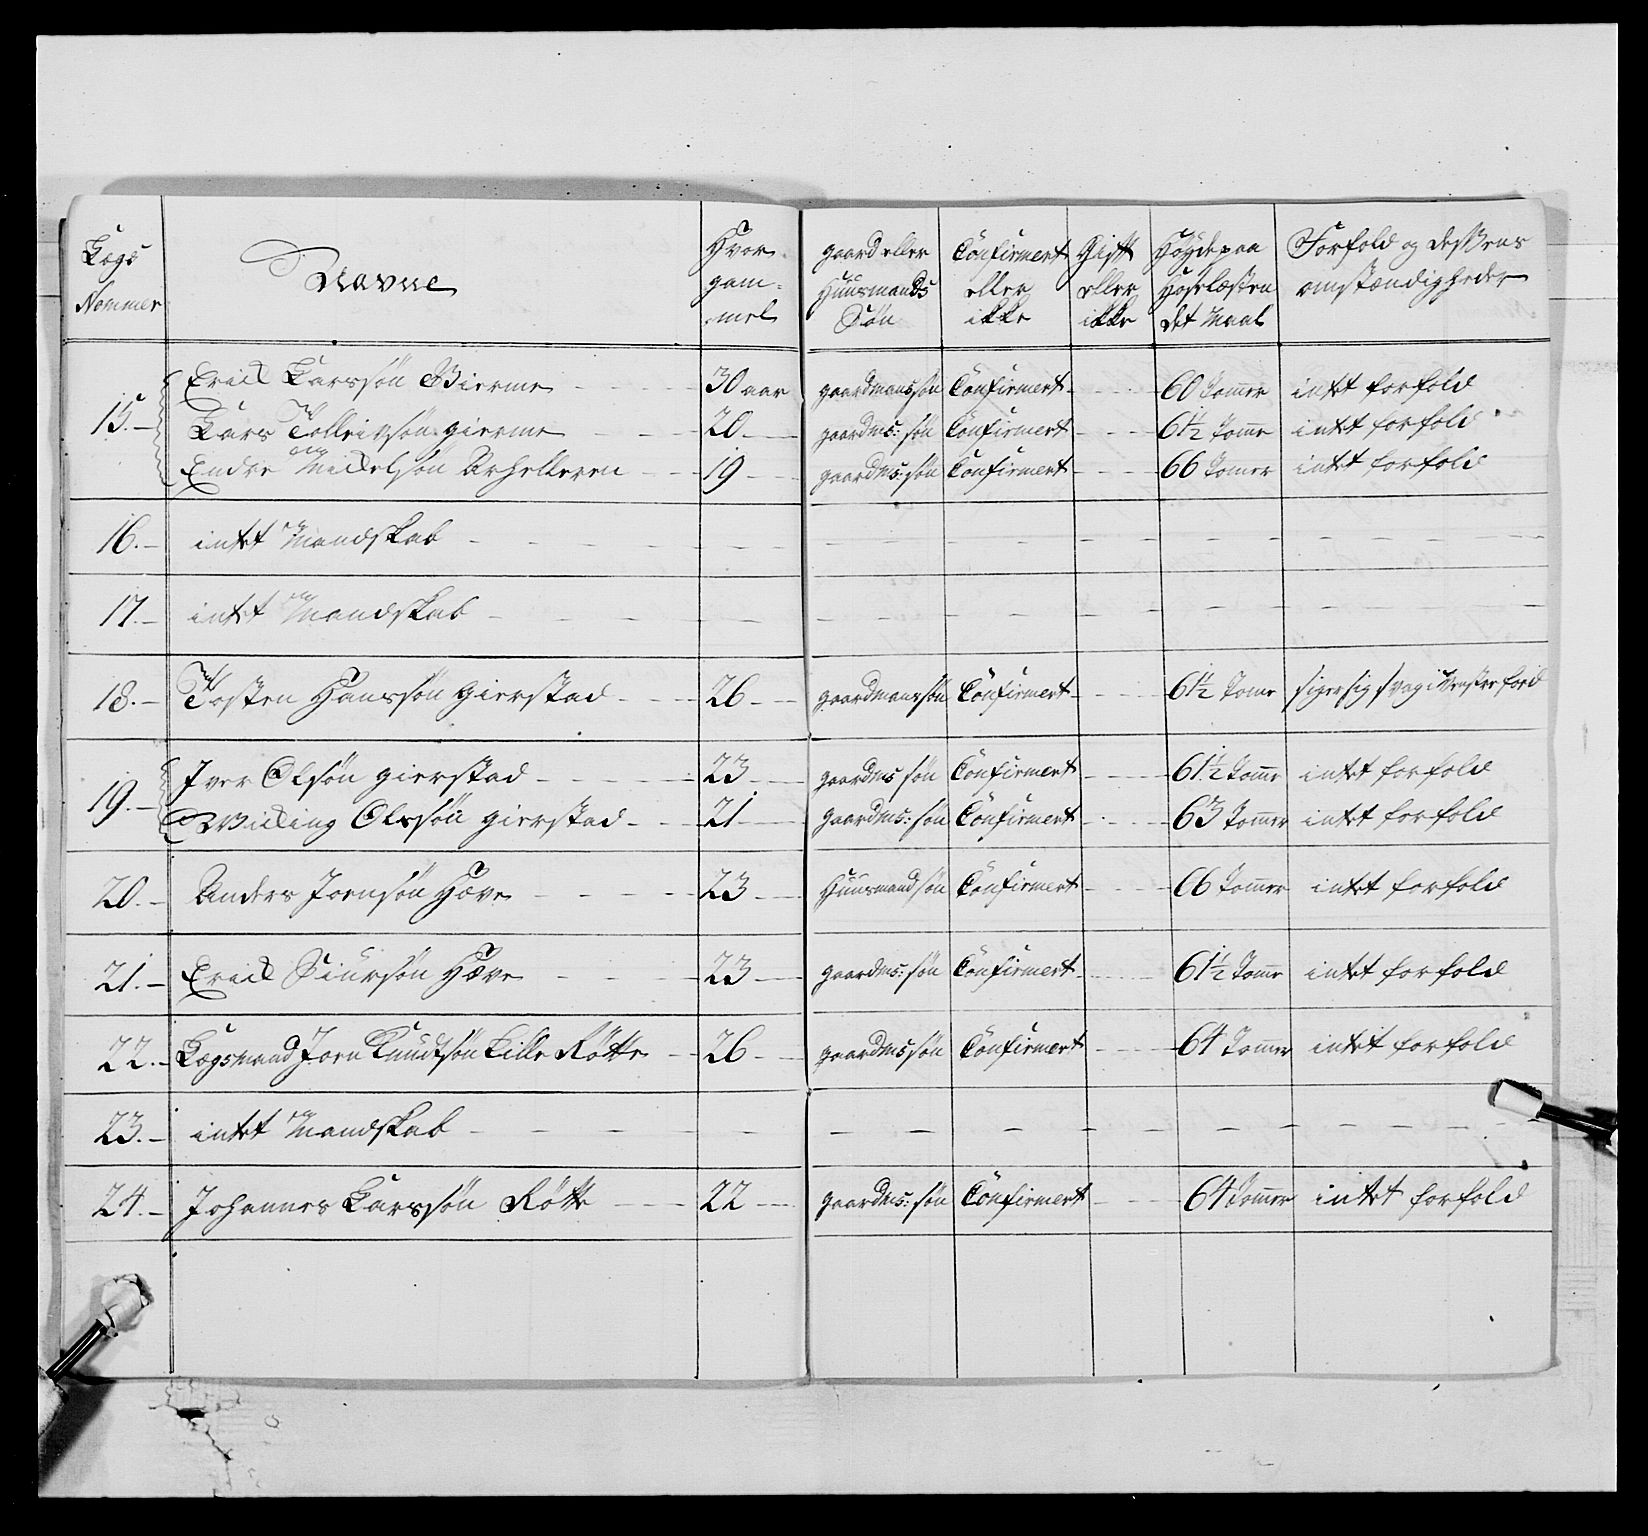 Lægs Nommer | Navne | Hvor gam-mel | gaard eller Huusmands Søn | Confirmert eller ikke | Gift eller ikke | Høyde paa Hoselæsten det Maal | Forfold og deßens omstændigheder
15.- Erick Larssøn Gierme - - - 30 aar gaardmans søn Confirmert - - - 60 Tomer intet forfold
Lars Tolleivsøn gierme - - - 20 - gaardms: søn Confirmert - - - 61½ Tome intet forfold
Endre Mickelsøn Arhelleren - - 19 - gaardms: søn Confirmert - - - 66 Tomer intet forfold
16.- intet Mandskab - - - - - - - - - - - -
17.- intet Mandskab - - - - - - - - - - - -
18.- Tosten Hanssøn Gierstad - - - 26 - gaardmans søn Confirmert - - - 61½ Tome siger sig svag i Venstre foed
19.- Iver Olsøn gierstad - - - - 23 gaardms søn Confirmert - - - 61½ Tome intet forfold
Wicking Olssøn gierstad - - 21 - gaardms: søn Confirmert - - - 63 Tommer intet forfold
20.- Anders Joensøn Hove - - - - 23 - Huusmand søn Confirmert - - - 66 Tomer intet forfold
21.- Erick Siursøn Hove - - - 23 - gaardms: søn Confirmert - - - 61½ Tome intet forfold
22.- Lægsmand Joen Knudtsøn Lille Røtte - 26 - gaardms søn Confirmert - - - 64 Tomer intet forfold
23.- intet Mandskab - - - - - - - - - - - -
24.- Johannes Larssøn Røtte - - - 22 - gaardms: søn Confirmert - - - 64 Tomer intet forfold